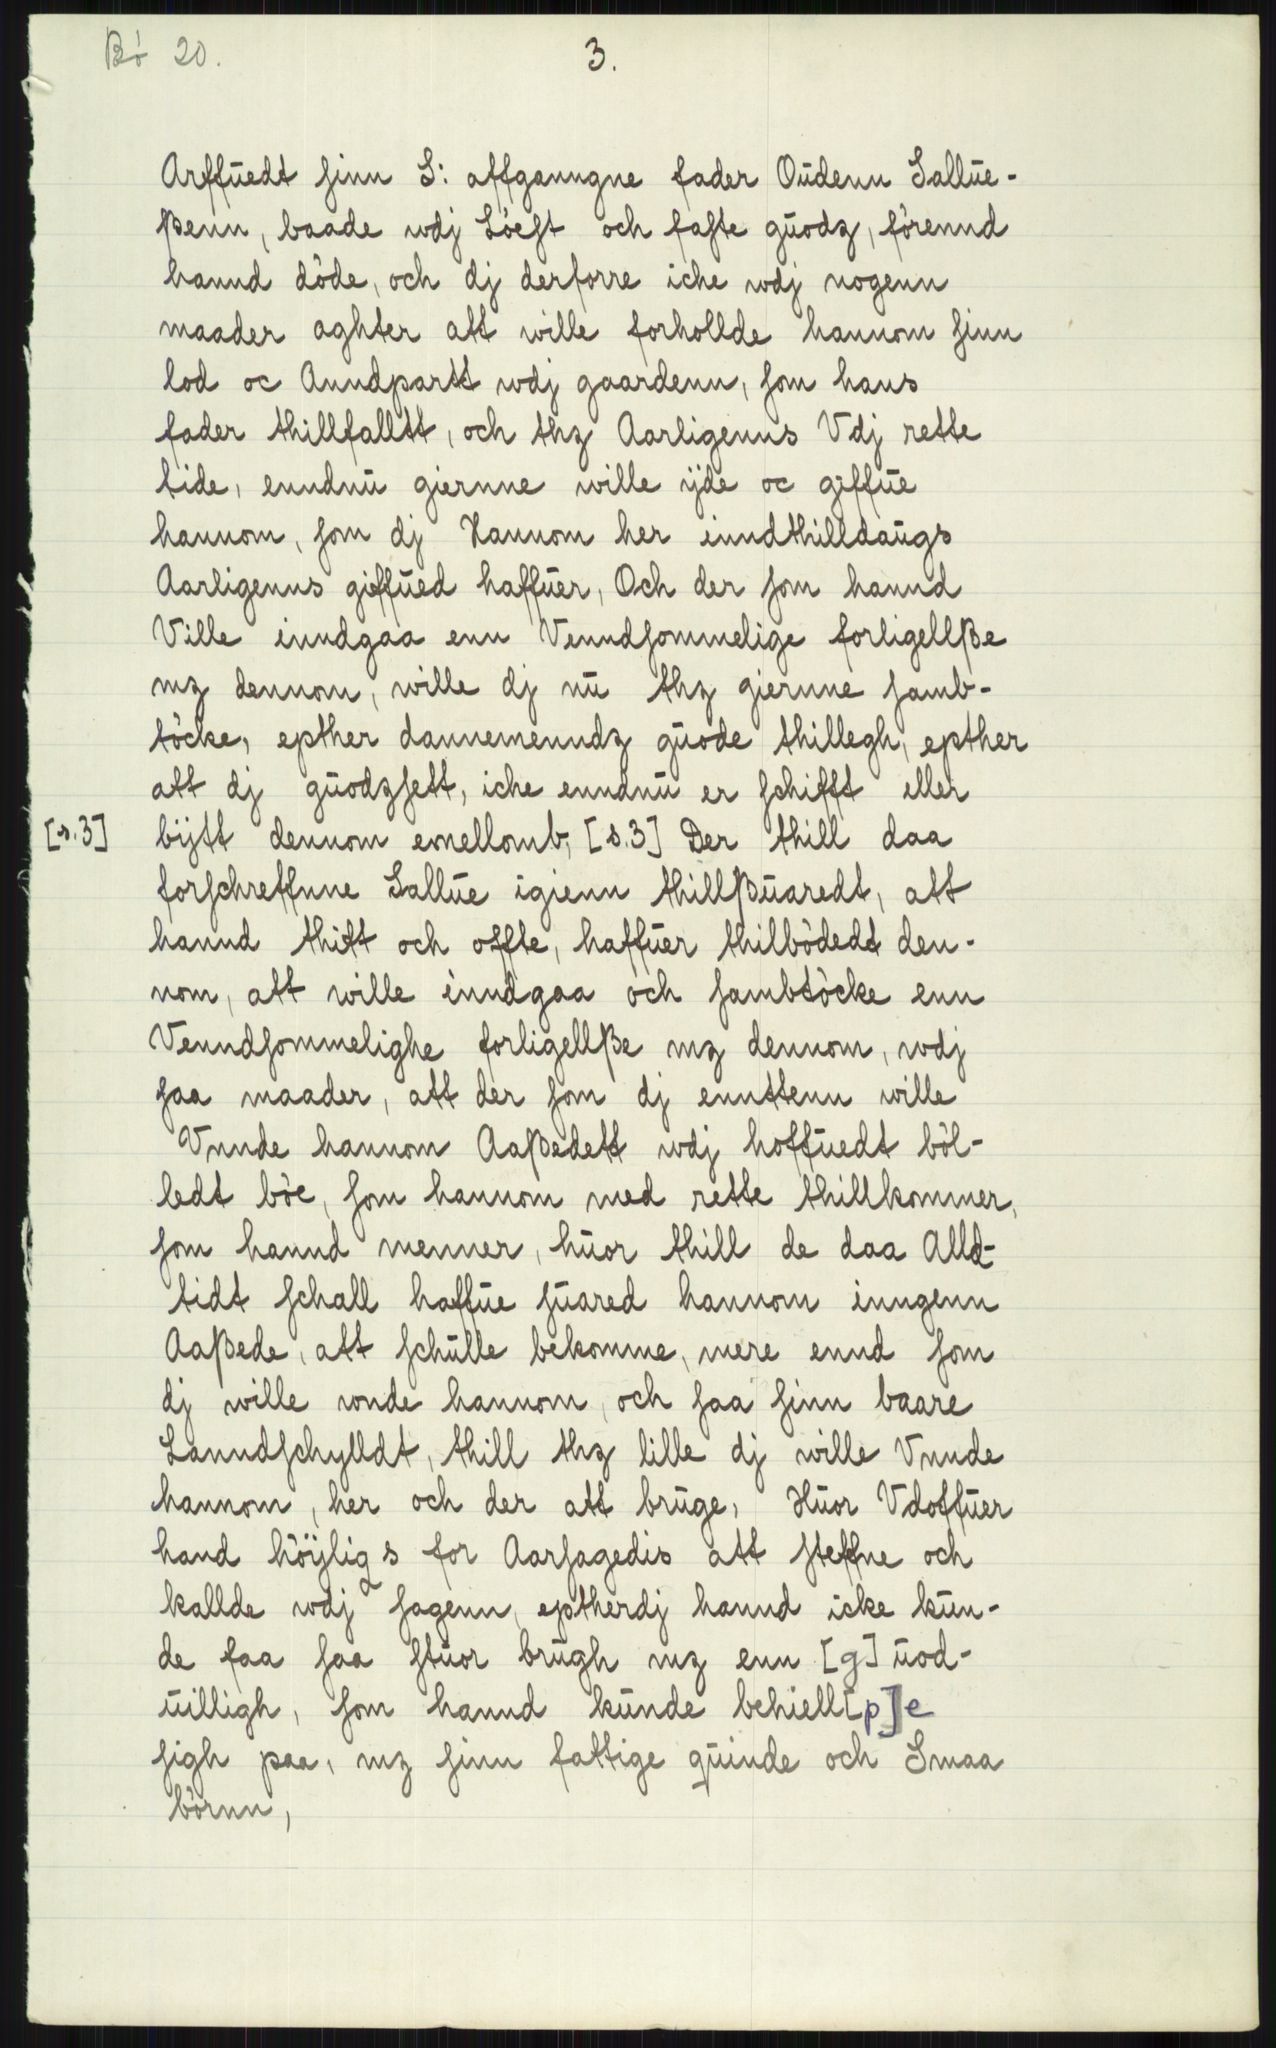 Bö 20.
3.
Arffuedt sinn S: affganngne fader Oudenn Sallue-
ßenn, baade wdj Löest och faste guodz, förennd
hannd döde, och dj derforre iche wdj nogenn
maader aghter att wille forhollde hannom sinn
lod oc Anndpartt wdj gaardenn, som hans
fader thillfalltt, och thz Aarligenns Vdj rette
tide, enndnu giernne wille ÿde oc giffue
hannom, som dj Hannom her inndthilldaugs
Aarligenns giffued haffuer, Och der som hannd
Ville inndgaa enn Venndsommelige forligellße
mz dennom, wille dj nu thz giernne samb-
töcke, epther dannemenndz guode thillegh, epther
att dj guodzsett, iche enndnu er schifft eller
[s.3] bÿtt dennom emellomb, [s.3] Der thill daa
forschreffnne Sallue igienn thillßuaredt, att
hannd thitt och offte, haffuer thilbödedt den-
nom, att wille inndgaa och sambtöcke enn
Venndsommelighe forligellße mz dennom, wdj
saa maader, att der som djennttenn wille
Vnnde hannom Aaßedett wdj hoffuedt böl-
ledt böe, som hannom med rette thillkommer,
som hannd menner, huor thill de daa Alld-
tidt schall haffue suared hannom inngenn
Aaßede, att schulle bekomme, mere ennd som
dj wille vonde hannom, och saa sinn baare
Lanndschylldt, thill thz lille dj wille Vnnde
hannom, her och der att bruge, Huor Vdoffuer
hand höÿligs for Aarsagedis att steffne och
kallde wdj sagenn, eptherdj hannd icke kun-
de faa saa stuor brugh mz enn [g]uod-
uilligh, som hannd kunde behiell[p]e
sigh paa, mz sinn fattige quinde och Smaa
börnn,